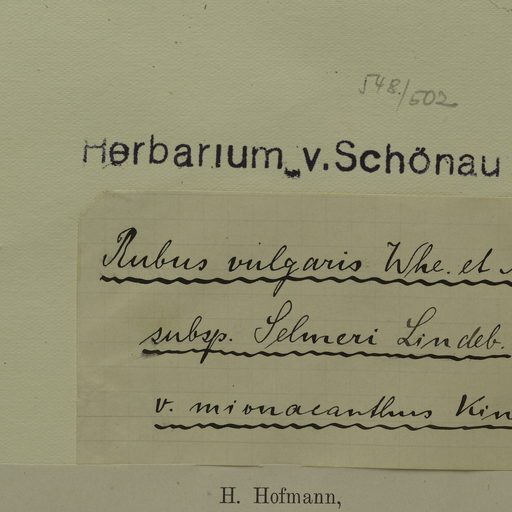 548./502
Herbarium v. Schönau
Rubus vulgaris Whe. et
subsp. Selmeri Lindeb.
v. mionacanthus Kin
H. Hofmann,